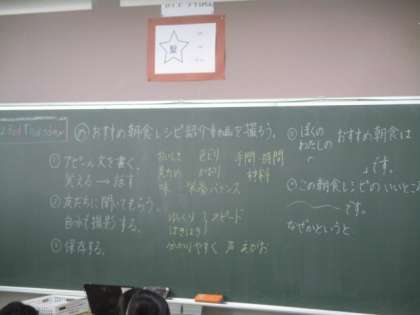 髪
23rd Thursday
め おすすめ朝食レシピ紹介動画を撮ろう。
① アピール文を書く。
考える→話す
② 友だちに聞いてもらう。
自分で撮影する。
③ 保存する。
おいしさ 色どり 手間・時間
見ため かおり 材料
味 栄養バランス
ゆっくり
はきはき
スピード
分かりやすく 声 えがお
ぼくの
わたしの
おすすめ朝食は
です。
この朝食レシピのいいところ
です。
なぜかというと